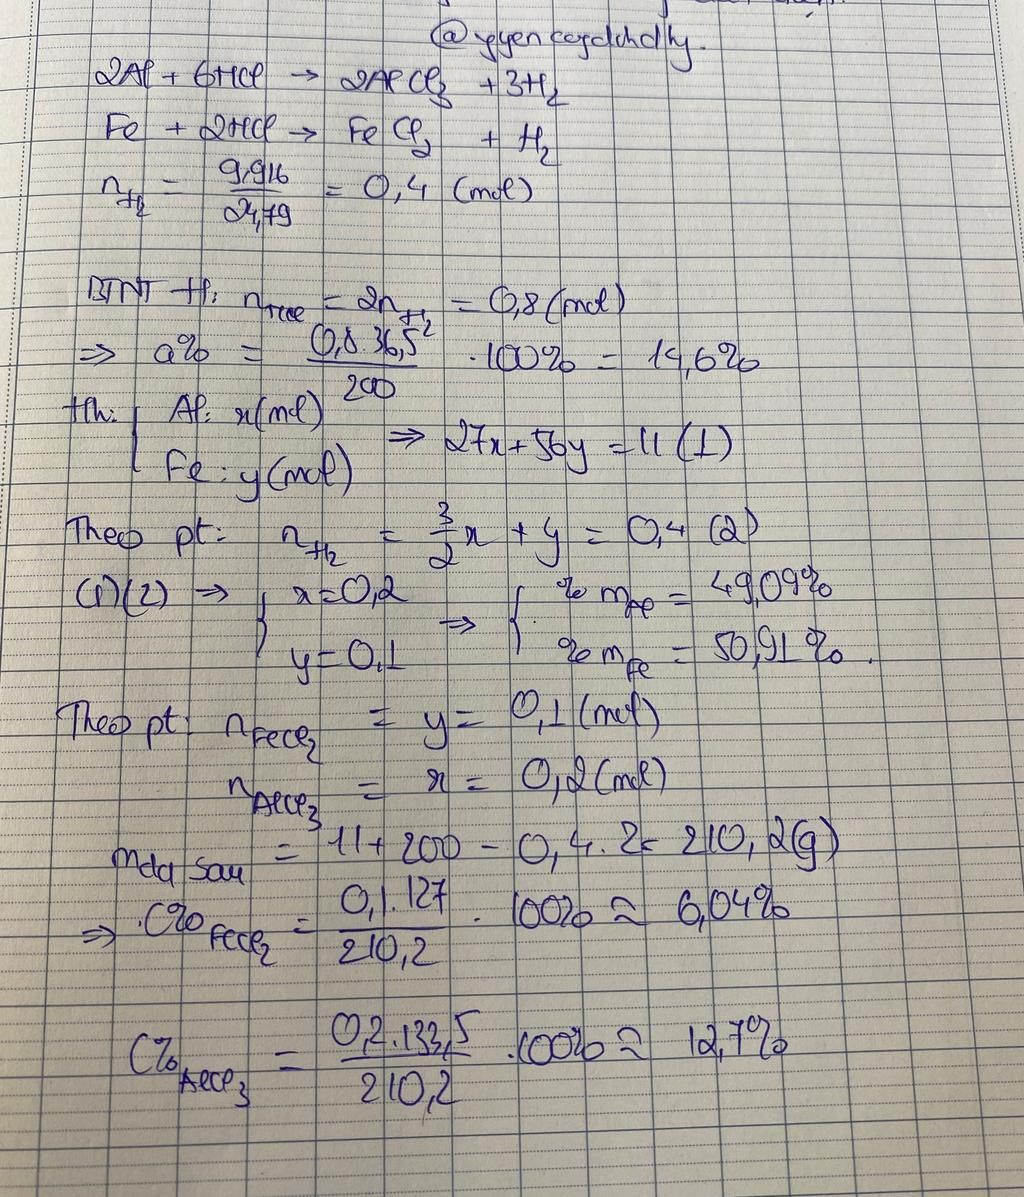 @yyencogdchdhy.
2Al + 6HCl → 2AlCl₃ + 3H₂
Fe + 2HCl → FeCl₂ + H₂
n_H₂ = 9,916/24,79 = 0,4 (mol)
BTNT H: n_HCl = 2n_H₂ = 0,8 (mol)
⇒ a% = 0,8.36,5/200 .100% = 14,6%
Hh: { Al: x(mol)
Fe: y(mol) ⇒ 27x + 56y = 11 (1)
Theo pt: n_H₂ = 3/2 x + y = 0,4 (2)
(1)(2) ⇒ { x = 0,2 ⇒ { % m_Al = 49,09%
y = 0,1 % m_Fe = 50,91%.
Theo pt: n_FeCl₂ = y = 0,1 (mol)
n_AlCl₃ = x = 0,2 (mol)
m_dd sau = 11 + 200 - 0,4.2 = 210,2(g)
⇒ C%_FeCl₂ = 0,1.127/210,2 . 100% ≈ 6,04%
C%_AlCl₃ = 0,2.133,5/210,2 .100% ≈ 12,7%